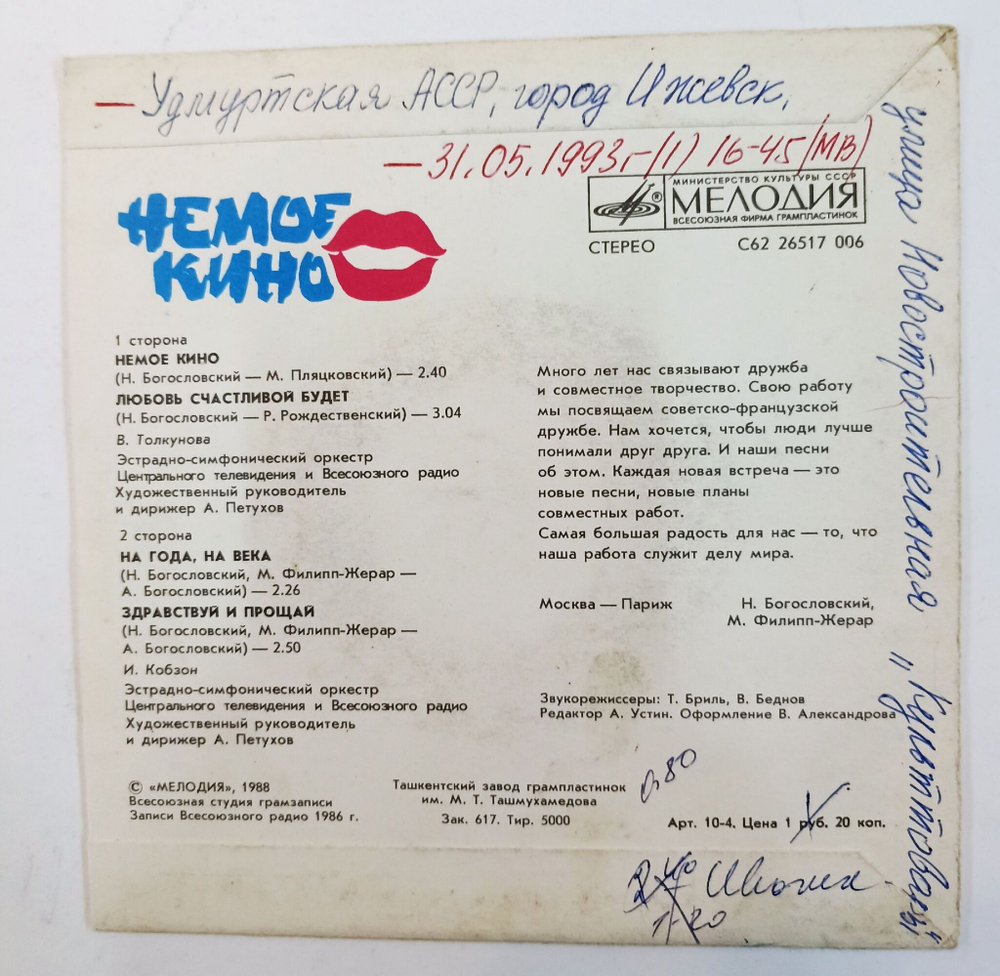 — Удмуртская АССР, город Ижевск,
— 31.05.1993г (1) 16-45 (МВ)
улица Новостроительная "Культтовары"
НЕМОЕ
КИНО
МИНИСТЕРСТВО КУЛЬТУРЫ СССР
МЕЛОДИЯ
ВСЕСОЮЗНАЯ ФИРМА ГРАМПЛАСТИНОК
СТЕРЕО С62 26517 006
1 сторона
НЕМОЕ КИНО
(Н. Богословский — М. Пляцковский) — 2.40
ЛЮБОВЬ СЧАСТЛИВОЙ БУДЕТ
(Н. Богословский — Р. Рождественский) — 3.04
В. Толкунова
Эстрадно-симфонический оркестр
Центрального телевидения и Всесоюзного радио
Художественный руководитель
и дирижер А. Петухов
2 сторона
НА ГОДА, НА ВЕКА
(Н. Богословский, М. Филипп-Жерар —
А. Богословский) — 2.26
ЗДРАВСТВУЙ И ПРОЩАЙ
(Н. Богословский, М. Филипп-Жерар —
А. Богословский) — 2.50
И. Кобзон
Эстрадно-симфонический оркестр
Центрального телевидения и Всесоюзного радио
Художественный руководитель
и дирижер А. Петухов
Много лет нас связывают дружба
и совместное творчество. Свою работу
мы посвящаем советско-французской
дружбе. Нам хочется, чтобы люди лучше
понимали друг друга. И наши песни
об этом. Каждая новая встреча — это
новые песни, новые планы
совместных работ.
Самая большая радость для нас — то, что
наша работа служит делу мира.
Москва — Париж Н. Богословский,
М. Филипп-Жерар
Звукорежиссеры: Т. Бриль, В. Беднов
Редактор А. Устин. Оформление В. Александрова
© «МЕЛОДИЯ», 1988
Всесоюзная студия грамзаписи
Записи Всесоюзного радио 1986 г.
Ташкентский завод грампластинок
им. М. Т. Ташмухамедова
Зак. 617. Тир. 5000
0,80
Арт. 10-4. Цена 1 руб. 20 коп.
1-20